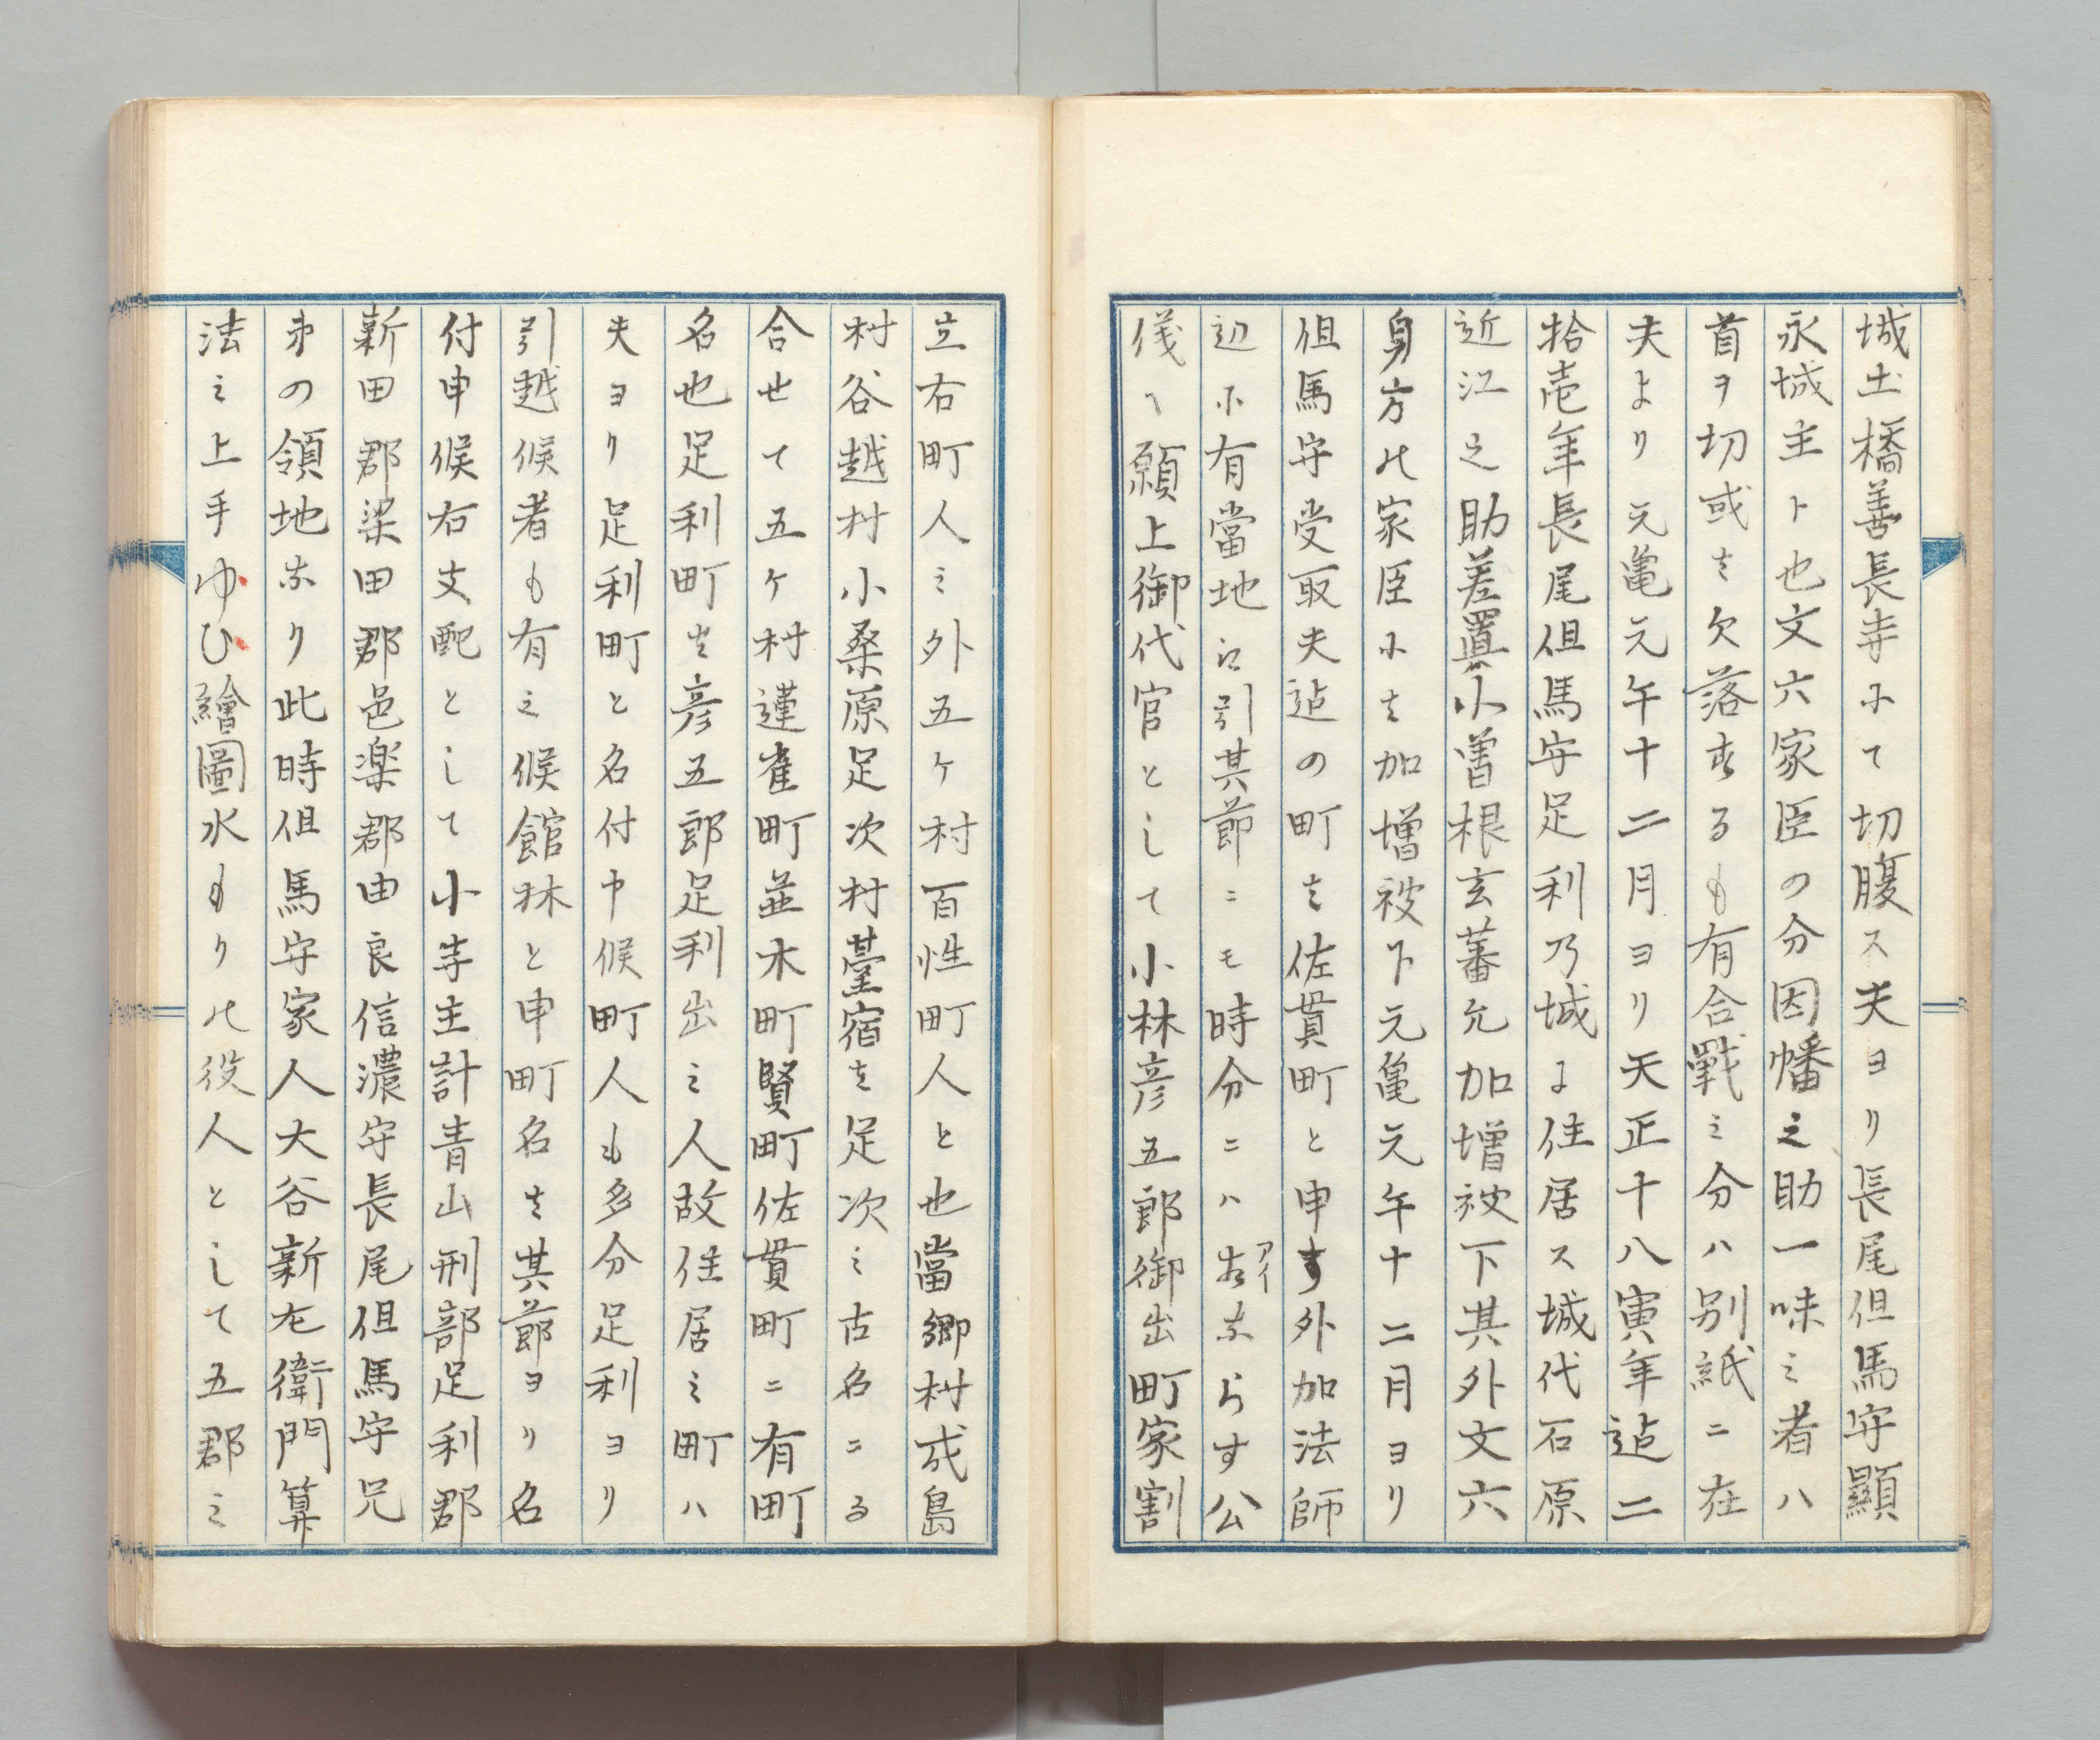 城土橋善長寺にて切腹ス夫ヨリ長尾但馬守顯
永城主ト也文六家臣の分因幡之助一味之者ハ
首ヲ切或は欠落するも有合戰之分ハ別紙ニ在
夫より元亀元午十二月ヨリ天正十八寅年迠二
拾壱年長尾但馬守足利乃城に住居ス城代石原
近江之助差置小曽根玄蕃允加増被下其外文六
身方の家臣には加増被下元亀元午十二月ヨリ
但馬守受取夫迠の町は佐貫町と申す外加法師
辺に有當地江引其節ニモ時分ニハあならす公
アイ
儀へ願上御代官として小林彦五郎御出町家割
立右町人之外五ケ村百性町人と也當郷村成島
村谷越村小桑原足次村臺宿は足次之古名ニる
合せて五ケ村連雀町並木町賢町佐貫町ニ有町
名也足利町は彦五郎足利出之人故住居之町ハ
夫ヨリ足利町と名付申候町人も多分足利ヨリ
引越候者も有之候館林と申町名は其節ヨリ名
付申候右支配として小寺主計青山刑部足利郡
新田郡梁田郡邑楽郡由良信濃守長尾但馬守兄
弟の領地なり此時但馬守家人大谷新左衛門算
法之上手ゆひ繪圖水もりの役人として五郡之